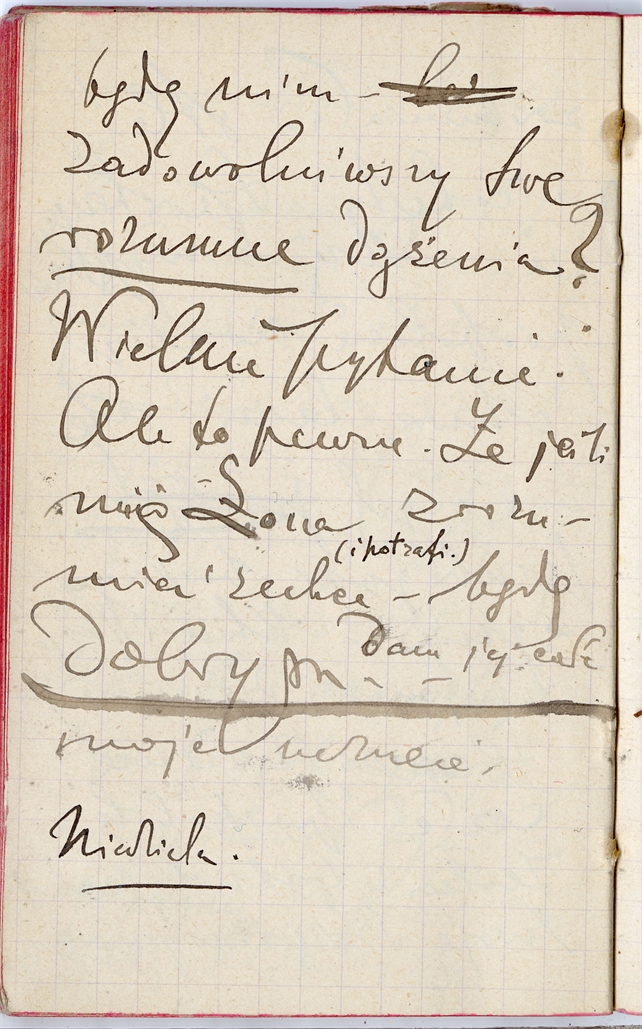 będę nim –
zadowolniwszy swe
rozumne dążenia?
Wielkie pytanie.
Ale to pewne. Że jeśli
mię Żona zrozu–
(i potrafi.)
mieć zechce – będę
Dobrym. – Dam jej całe
moje uczucie.
Niedziela.